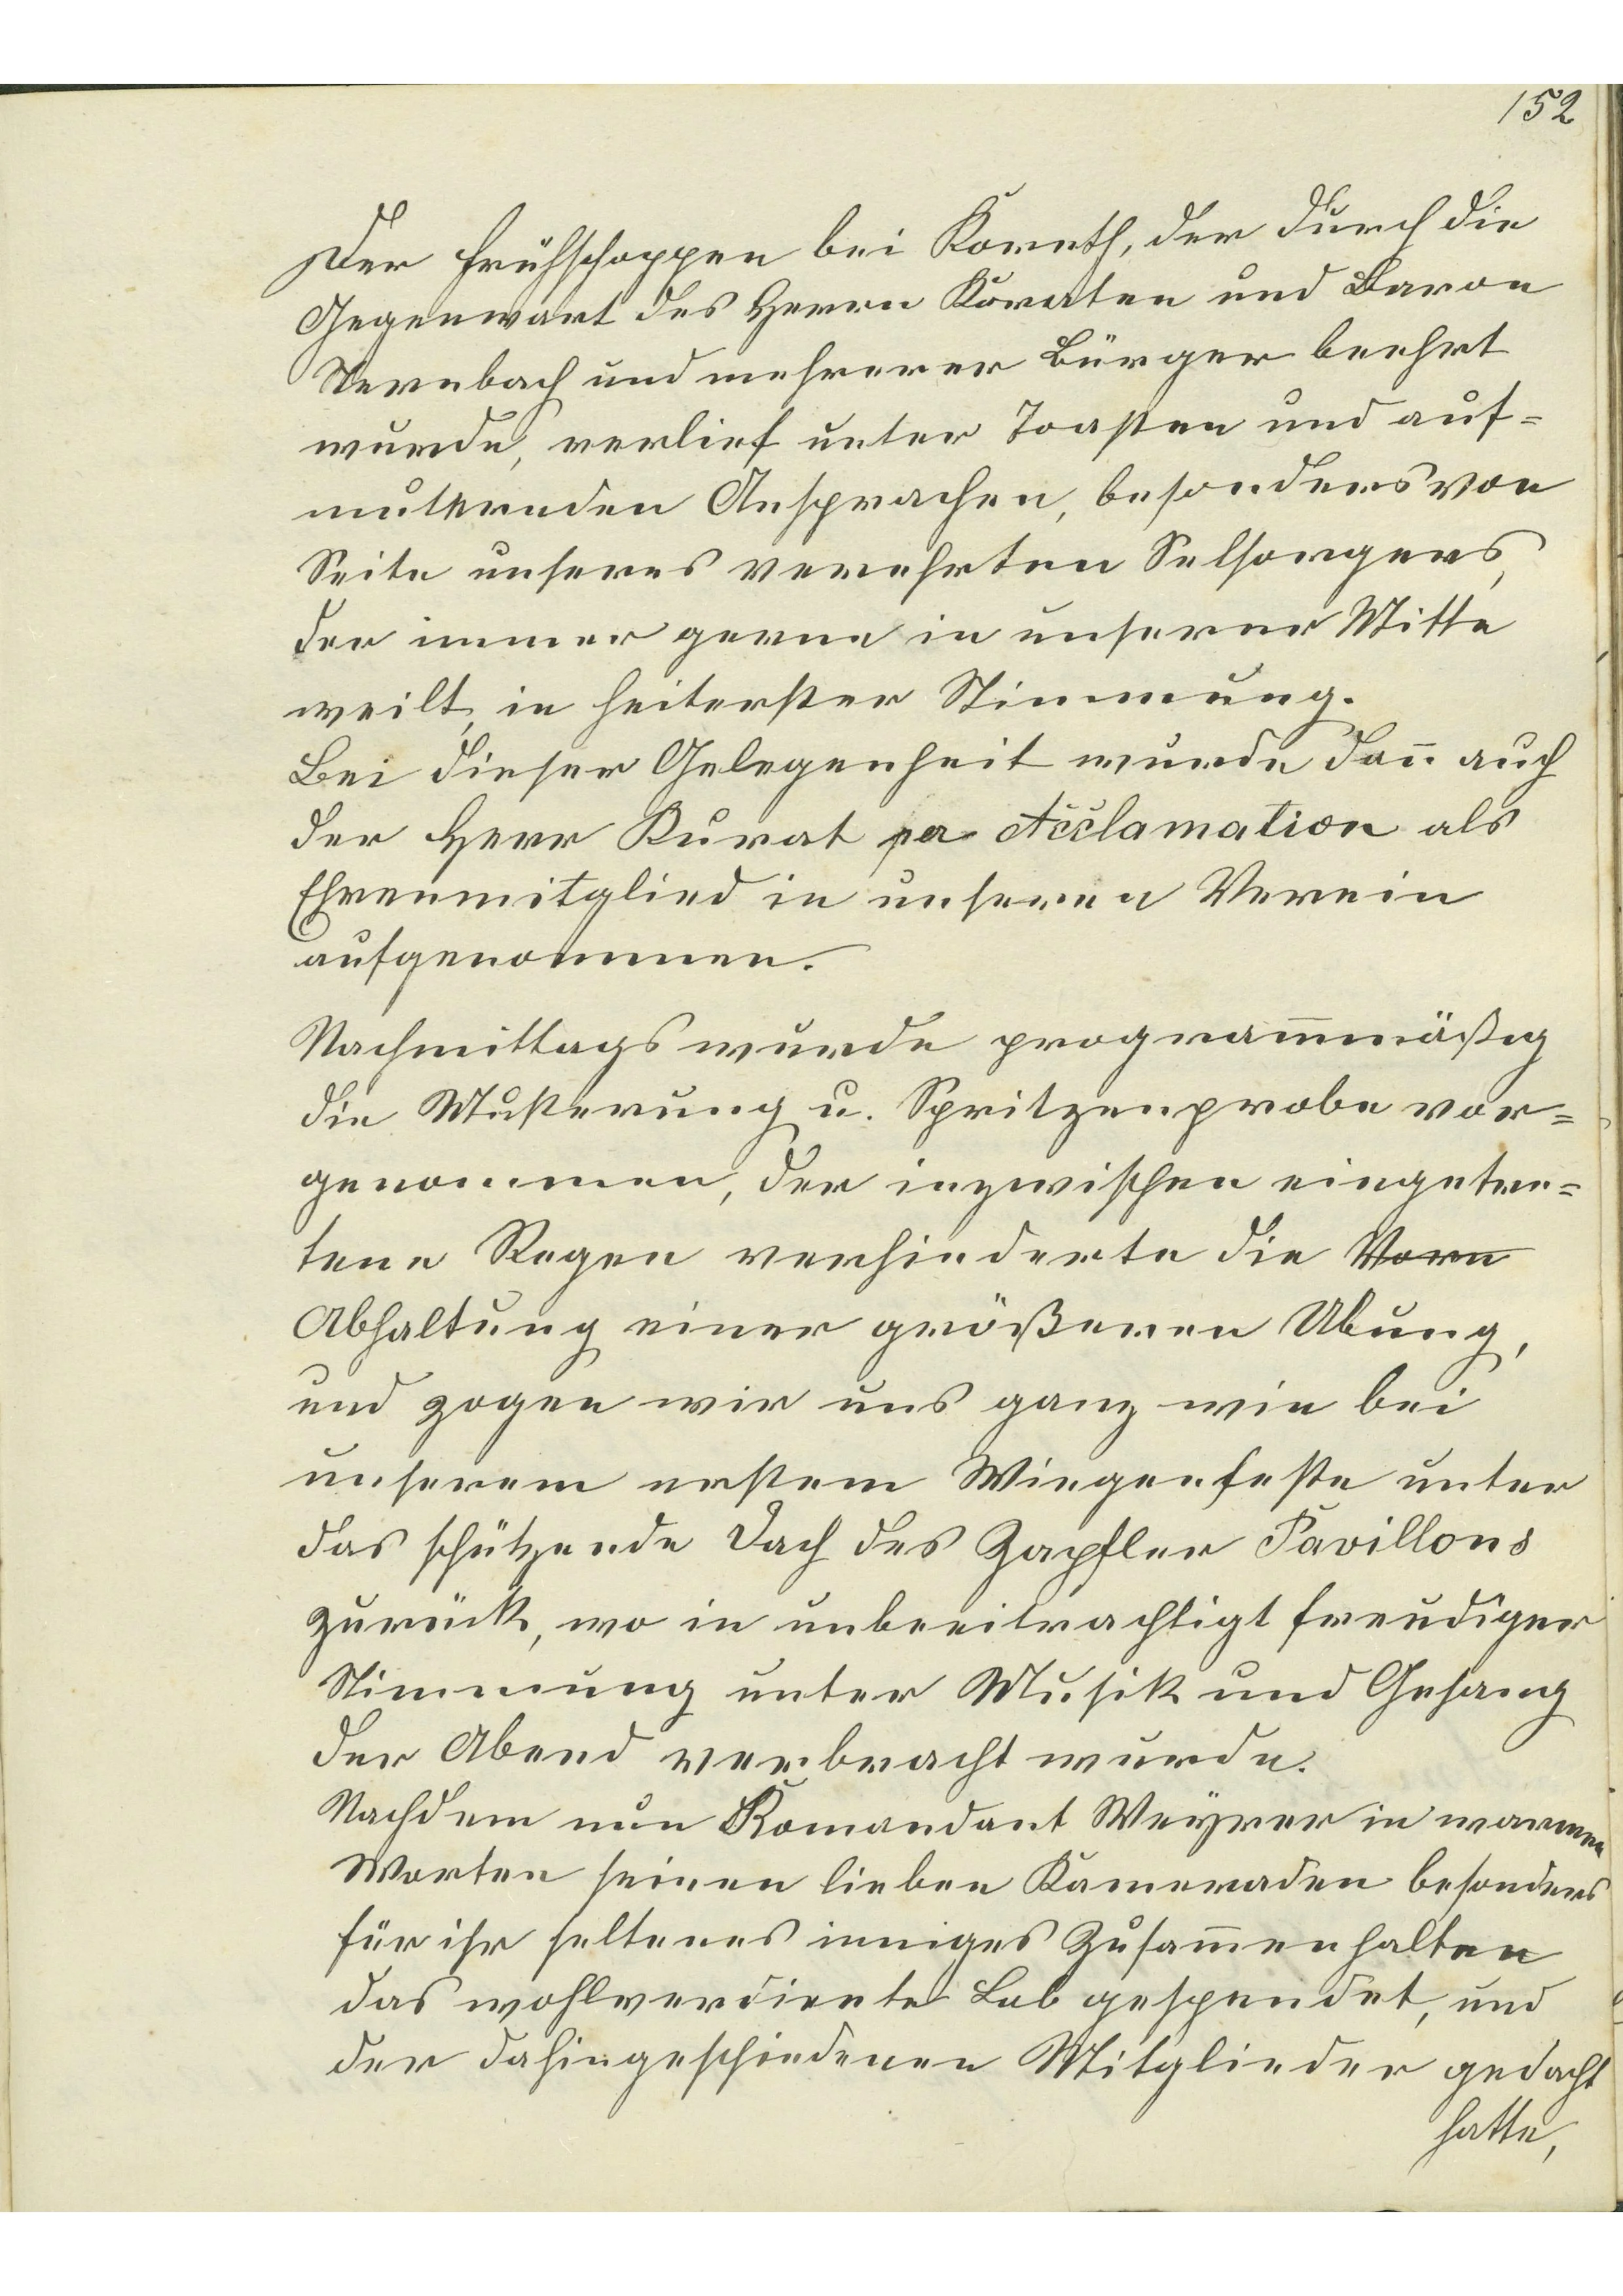 152
Der Frühschoppen bei Koreth, der durch die
Gegenwart des Herrn Kuraten und Baron
Sternbach und mehrerer Bürger beehrt
wurde, verlief unter Toasten und auf=
munternden Ansprachen, besonders von
Seite unseres verehrten Selsorgers,
der immer gerne in unserer Mitte
weilt, in heiterster Stimmung.
Bei dieser Gelegenheit wurde dan̄ auch
der Herr Kurat pa Acclamation als
Ehrenmitglied in unseren Verein
aufgenommen.
Nachmittags wurde program̄mäßig
die Musterung u. Spritzenprobe vor=
genommen, der inzwischen eingetre=
tene Regen verhinderte die Vorn
Abhaltung einer größeren Ubung,
und zogen wir uns ganz wie bei
unserem erstem Wiegenfeste unter
das schützende Dach des Zapfler Pavillons
zurück, wo in unbeeitrachtigt freudiger
Stimmung unter Musik und Gesang
der Abend verbracht wurde.
Nachdem nun Komandant Weyrer in warmen
Worten seinen lieben Kameraden besonders
für ihr seltenes inniges Zusam̄enhalten
das wohlverdiente Lob gespendet, und
der dahingeschiedenen Mitglieder gedacht
hatte,